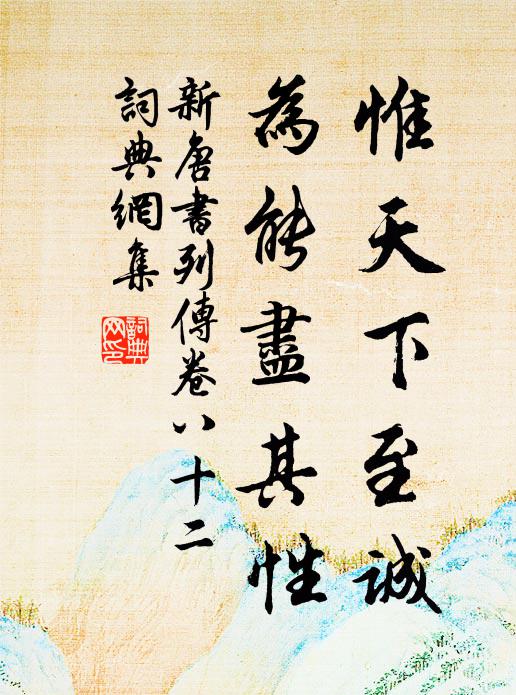 惟天下至誠
為能盡其性
新唐書列傳卷八十二
詞典網集
詞典
网印